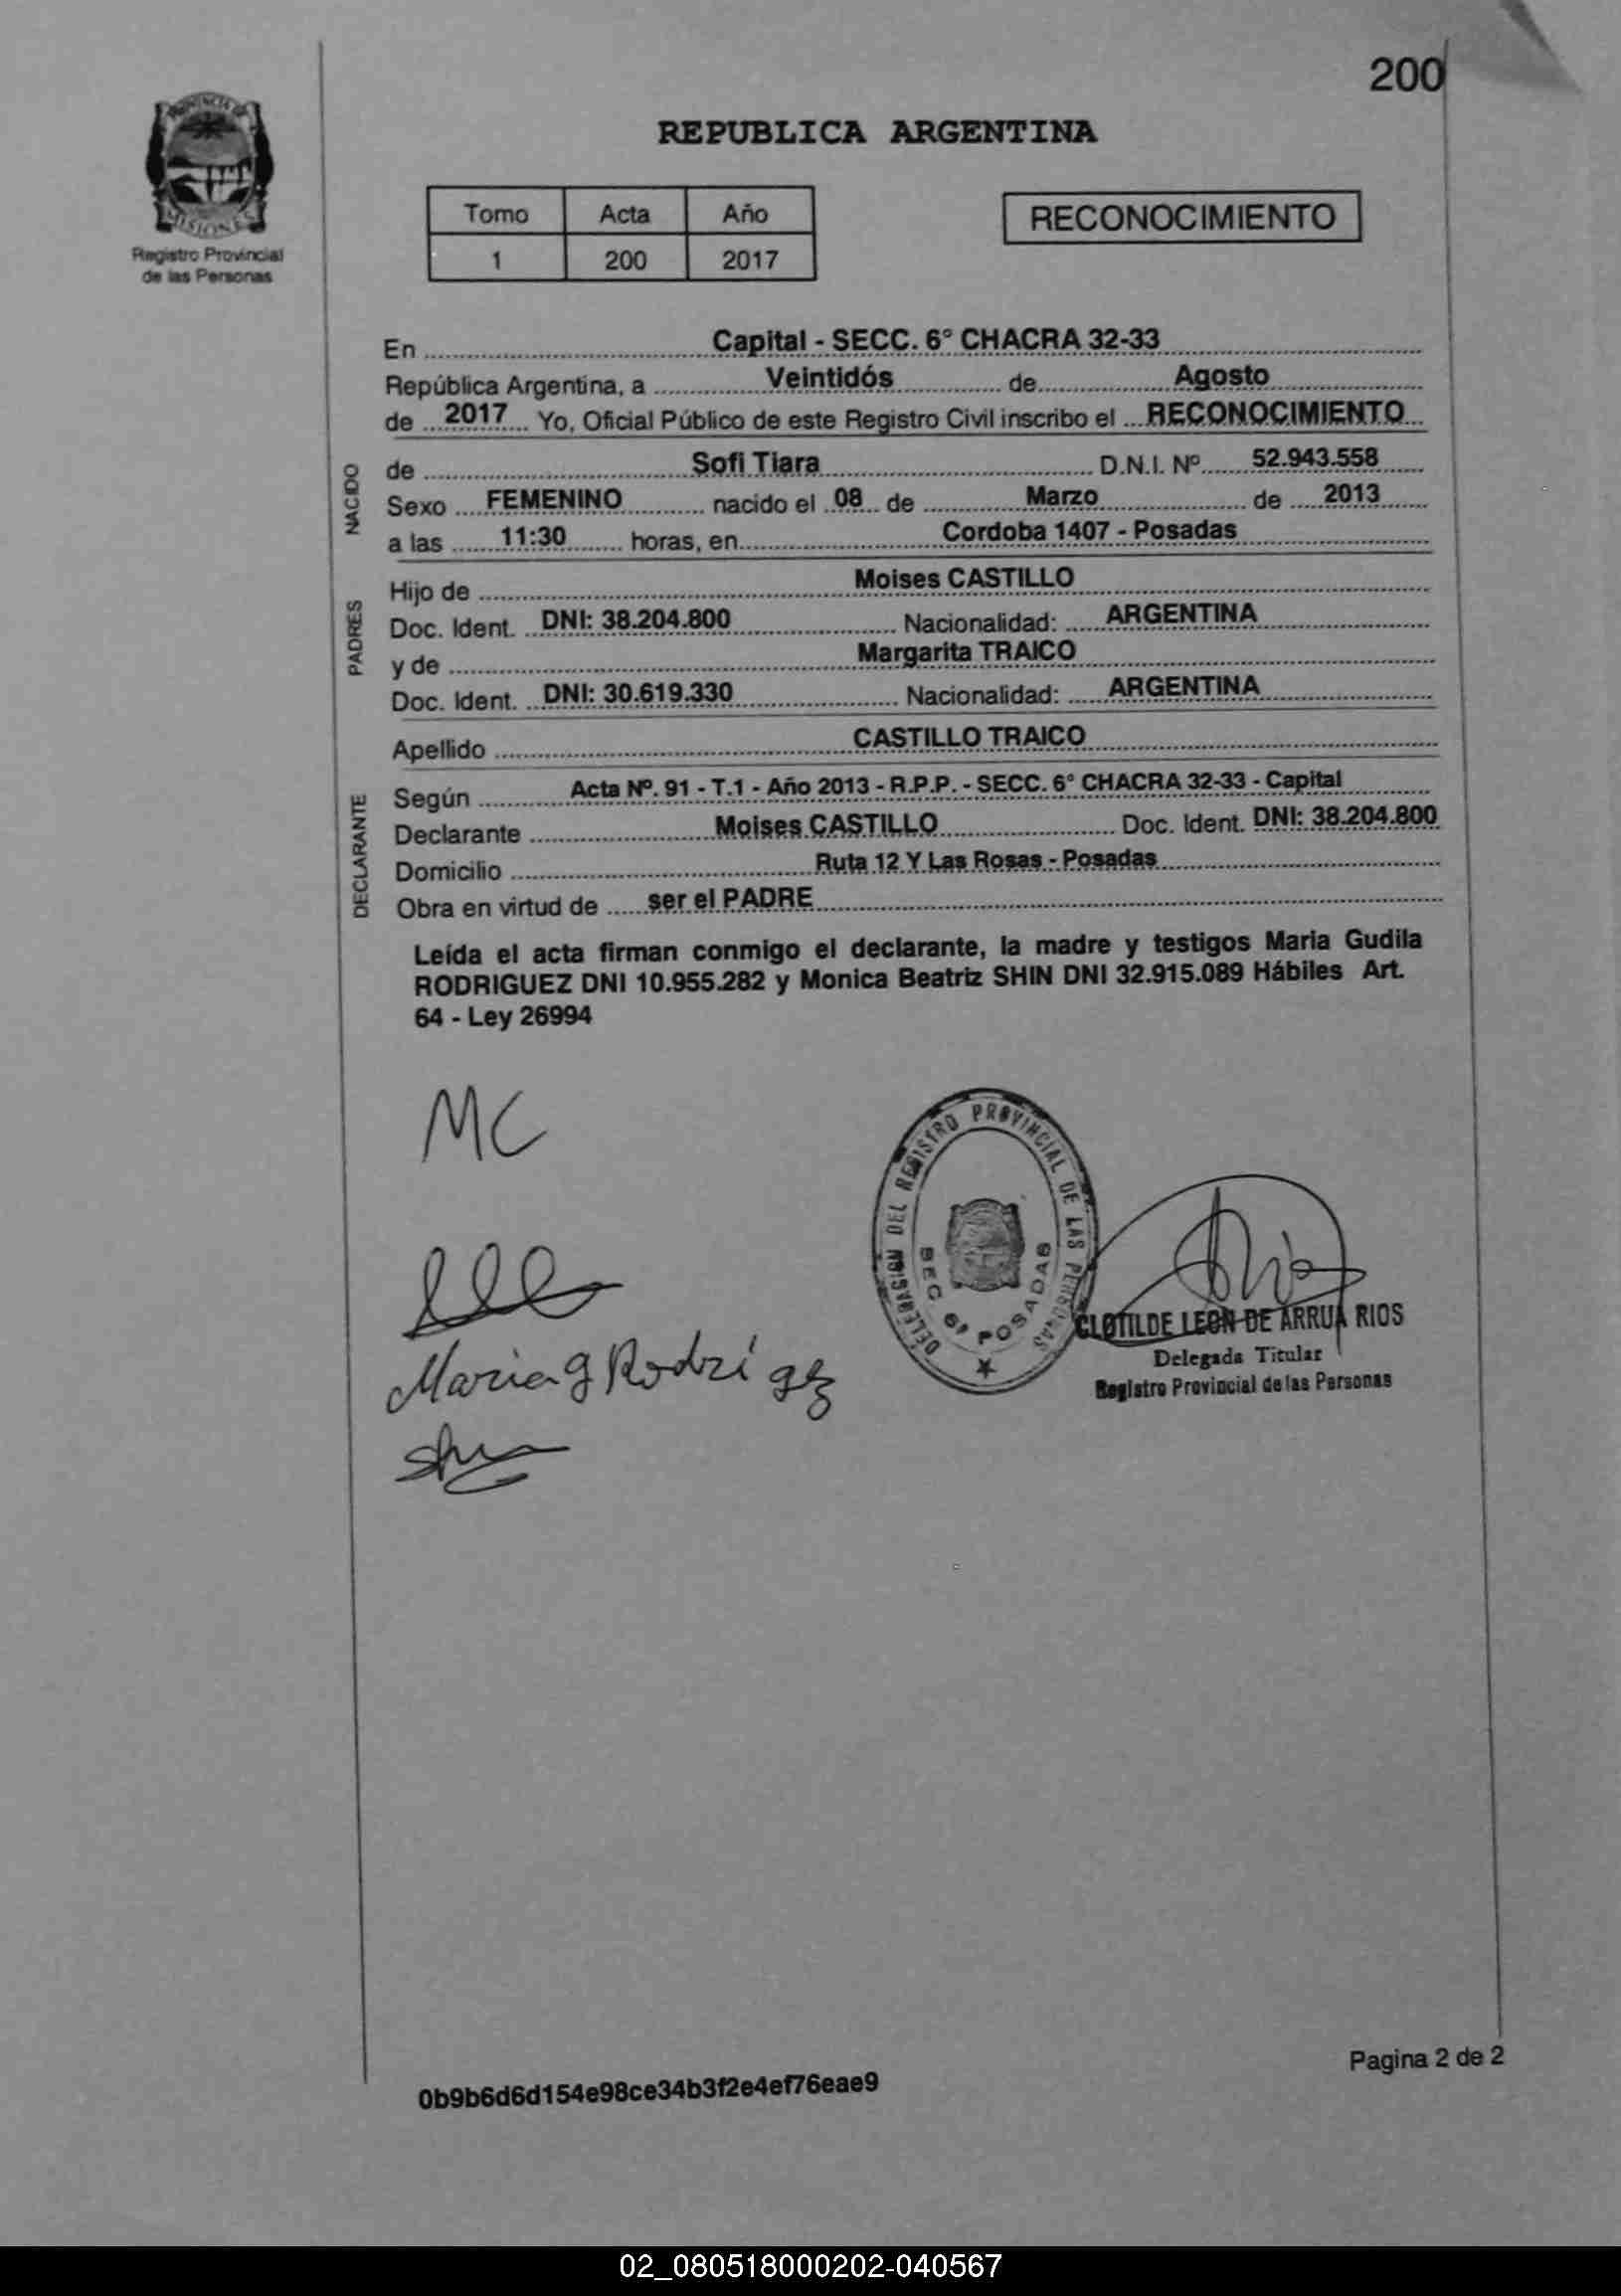 200
PROVINCIA DE
MISIONES
Registro Provincial
de las Personas
REPUBLICA ARGENTINA
Tomo Acta Año
1 200 2017
RECONOCIMIENTO
En Capital - SECC. 6° CHACRA 32-33
República Argentina, a Veintidós de Agosto
de 2017 Yo, Oficial Público de este Registro Civil inscribo el RECONOCIMIENTO
NACIDO
de Sofi Tiara D.N.I. Nº 52.943.558
Sexo FEMENINO nacido el 08 de Marzo de 2013
a las 11:30 horas, en Cordoba 1407 - Posadas
PADRES
Hijo de Moises CASTILLO
Doc. Ident. DNI: 38.204.800 Nacionalidad: ARGENTINA
y de Margarita TRAICO
Doc. Ident. DNI: 30.619.330 Nacionalidad: ARGENTINA
Apellido CASTILLO TRAICO
DECLARANTE
Según Acta Nº. 91 - T.1 - Año 2013 - R.P.P. - SECC. 6° CHACRA 32-33 - Capital
Declarante Moises CASTILLO Doc. Ident. DNI: 38.204.800
Domicilio Ruta 12 Y Las Rosas - Posadas
Obra en virtud de ser el PADRE
Leída el acta firman conmigo el declarante, la madre y testigos Maria Gudila
RODRIGUEZ DNI 10.955.282 y Monica Beatriz SHIN DNI 32.915.089 Hábiles Art.
64 - Ley 26994
MC
Maria g Rodri gez
DELEGACION DEL REGISTRO PROVINCIAL DE LAS PERSONAS
SEC 6ª POSADAS
CLOTILDE LEON DE ARRUA RIOS
Delegada Titular
Registro Provincial de las Personas
Pagina 2 de 2
0b9b6d6d154e98ce34b3f2e4ef76eae9
02_080518000202-040567